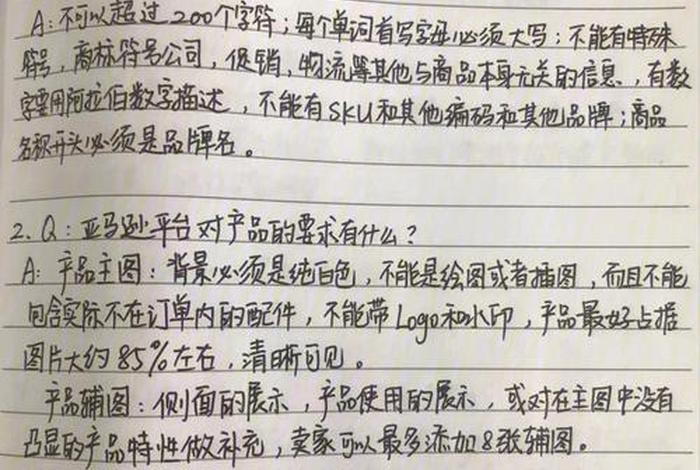 A：不可以超过200个字符；每个单词首写字母必须大写；不能有特殊
符号，商标符号公司，促销，物流等其他与商品本身无关的信息，有数
字要用阿拉伯数字描述，不能有SKU和其他编码和其他品牌；商品
名称开头必须是品牌名。
2、Q：亚马逊平台对产品的要求有什么？
A：产品主图：背景必须是纯白色，不能是绘图或者插图，而且不能
包含实际不在订单内的配件，不能带Logo和水印，产品最好占据
图片大约85%左右，清晰可见。
产品辅图：侧面的展示，产品使用的展示，或对在主图中没有
凸显的产品特性做补充，卖家可以最多添加8张辅图。